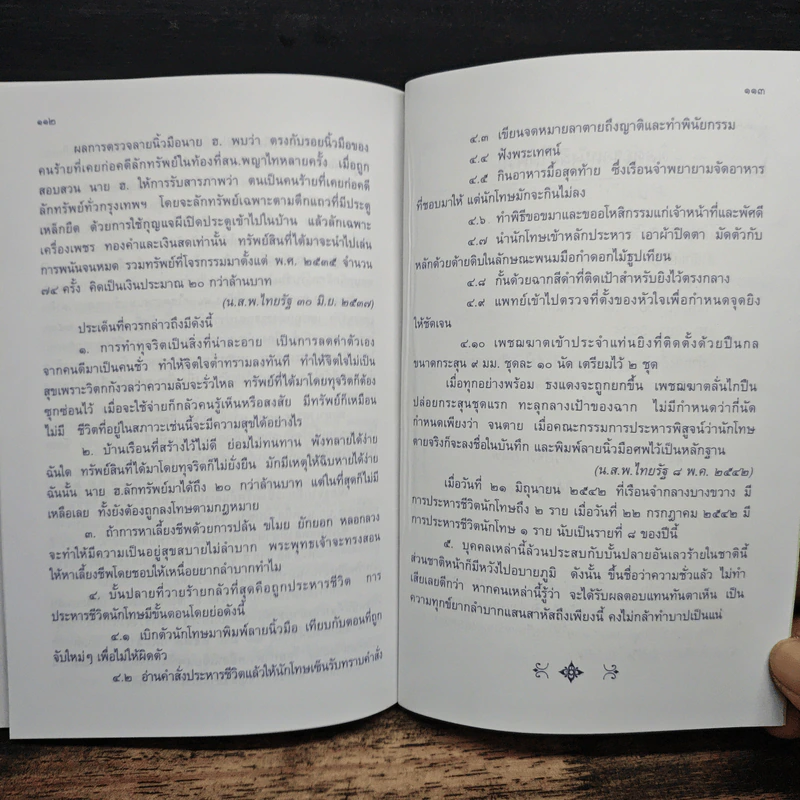 ๑๑๒
ผลการตรวจลายนิ้วมือนาย ฮ. พบว่า ตรงกับรอยนิ้วมือของ
คนร้ายที่เคยก่อคดีลักทรัพย์ในท้องที่สน.พญาไทหลายครั้ง เมื่อถูก
สอบสวน นาย ฮ. ให้การรับสารภาพว่า ตนเป็นคนร้ายที่เคยก่อคดี
ลักทรัพย์ทั่วกรุงเทพฯ โดยจะลักทรัพย์เฉพาะตามตึกแถวที่มีประตู
เหล็กยืด ด้วยการใช้กุญแจผีเปิดประตูเข้าไปในบ้าน แล้วลักเฉพาะ
เครื่องเพชร ทองคำและเงินสดเท่านั้น ทรัพย์สินที่ได้มาจะนำไปเล่น
การพนันจนหมด รวมทรัพย์ที่โจรกรรมมาตั้งแต่ พ.ศ. ๒๕๓๕ จำนวน
๗๔ ครั้ง คิดเป็นเงินประมาณ ๒๐ กว่าล้านบาท
(น.ส.พ.ไทยรัฐ ๓๐ มิ.ย. ๒๕๓๗)
ประเด็นที่ควรกล่าวถึงมีดังนี้
๑. การทำทุจริตเป็นสิ่งที่น่าละอาย เป็นการลดค่าตัวเอง
จากคนดีมาเป็นคนชั่ว ทำให้จิตใจต่ำทรามลงทันที ทำให้จิตใจไม่เป็น
สุขเพราะวิตกกังวลว่าความลับจะรั่วไหล ทรัพย์ที่ได้มาโดยทุจริตก็ต้อง
ซุกซ่อนไว้ เมื่อจะใช้จ่ายก็กลัวคนรู้เห็นหรือสงสัย มีทรัพย์ก็เหมือน
ไม่มี ชีวิตที่อยู่ในสภาวะเช่นนี้จะมีความสุขได้อย่างไร
๒. บ้านเรือนที่สร้างไว้ไม่ดี ย่อมไม่ทนทาน พังทลายได้ง่าย
ฉันใด ทรัพย์สินที่ได้มาโดยทุจริตก็ไม่ยั่งยืน มักมีเหตุให้ฉิบหายได้ง่าย
ฉันนั้น นาย ฮ.ลักทรัพย์มาได้ถึง ๒๐ กว่าล้านบาท แต่ในที่สุดก็ไม่มี
เหลือเลย ทั้งยังต้องถูกลงโทษตามกฎหมาย
๓. ถ้าการหาเลี้ยงชีพด้วยการปล้น ขโมย ยักยอก หลอกลวง
จะทำให้มีความเป็นอยู่สุขสบายไม่ลำบาก พระพุทธเจ้าจะทรงสอน
ให้หาเลี้ยงชีพโดยชอบให้เหนื่อยยากลำบากทำไม
๔. บั้นปลายที่วายร้ายกลัวที่สุดคือถูกประหารชีวิต การ
ประหารชีวิตนักโทษมีขั้นตอนโดยย่อดังนี้
๔.๑ เบิกตัวนักโทษมาพิมพ์ลายนิ้วมือ เทียบกับตอนที่ถูก
จับใหม่ๆ เพื่อไม่ให้ผิดตัว
๔.๒ อ่านคำสั่งประหารชีวิตแล้วให้นักโทษเซ็นรับทราบคำสั่ง
๑๑๓
๔.๓ เขียนจดหมายลาตายถึงญาติและทำพินัยกรรม
๔.๔ ฟังพระเทศน์
๔.๕ กินอาหารมื้อสุดท้าย ซึ่งเรือนจำพยายามจัดอาหาร
ที่ชอบมาให้ แต่นักโทษมักจะกินไม่ลง
๔.๖ ทำพิธีขอขมาและขออโหสิกรรมแก่เจ้าหน้าที่และพัศดี
๔.๗ นำนักโทษเข้าหลักประหาร เอาผ้าปิดตา มัดตัวกับ
หลักด้วยด้ายดิบในลักษณะพนมมือกำดอกไม้ธูปเทียน
๔.๘ กั้นด้วยฉากสีดำที่ติดเป้าสำหรับยิงไว้ตรงกลาง
๔.๙ แพทย์เข้าไปตรวจที่ตั้งของหัวใจเพื่อกำหนดจุดยิง
ให้ชัดเจน
๔.๑๐ เพชฌฆาตเข้าประจำแท่นยิงที่ติดตั้งด้วยปืนกล
ขนาดกระสุน ๙ มม. ชุดละ ๑๐ นัด เตรียมไว้ ๒ ชุด
เมื่อทุกอย่างพร้อม ธงแดงจะถูกยกขึ้น เพชฌฆาตลั่นไกปืน
ปล่อยกระสุนชุดแรก ทะลุกลางเป้าของฉาก ไม่มีกำหนดว่ากี่นัด
กำหนดเพียงว่า จนตาย เมื่อคณะกรรมการประหารพิสูจน์ว่านักโทษ
ตายจริงก็จะลงชื่อในบันทึก และพิมพ์ลายนิ้วมือศพไว้เป็นหลักฐาน
(น.ส.พ.ไทยรัฐ ๘ พ.ค. ๒๕๔๒)
เมื่อวันที่ ๒๑ มิถุนายน ๒๕๔๒ ที่เรือนจำกลางบางขวาง มี
การประหารชีวิตนักโทษถึง ๒ ราย เมื่อวันที่ ๒๒ กรกฎาคม ๒๕๔๒ มี
การประหารชีวิตนักโทษ ๑ ราย นับเป็นรายที่ ๘ ของปีนี้
๕. บุคคลเหล่านี้ล้วนประสบกับบั้นปลายอันเลวร้ายในชาตินี้
ส่วนชาติหน้าก็มีหวังไปอบายภูมิ ดังนั้น ขึ้นชื่อว่าความชั่วแล้ว ไม่ทำ
เสียเลยดีกว่า หากคนเหล่านี้รู้ว่า จะได้รับผลตอบแทนทันตาเห็น เป็น
ความทุกข์ยากลำบากแสนสาหัสถึงเพียงนี้ คงไม่กล้าทำบาปเป็นแน่